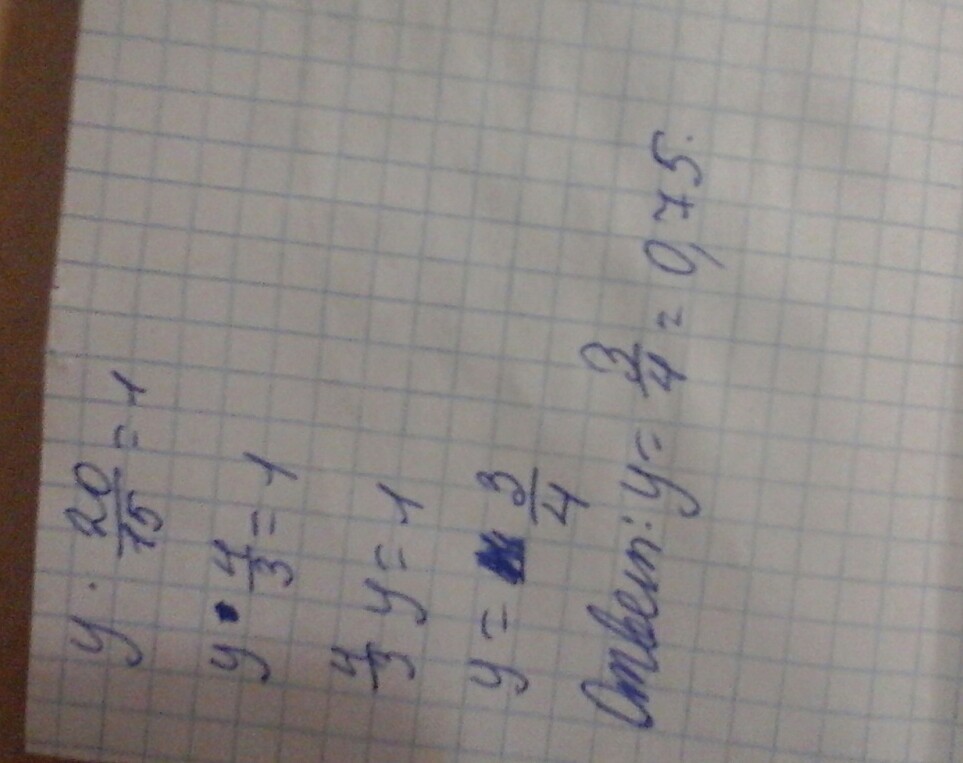 y · 20/15 = 1
y · 4/3 = 1
4/3 y = 1
y = 3/4
Ответ: y = 3/4 = 0,75.